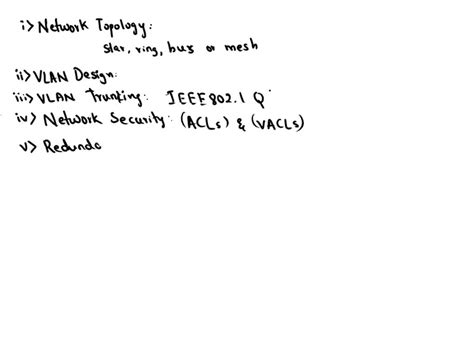 i> Network Topology:
star, ring, bus or mesh
ii> VLAN Design:
iii> VLAN Trunking: IEEE802.1 Q
iv> Network Security: (ACLs) & (VACLs)
v> Redundo